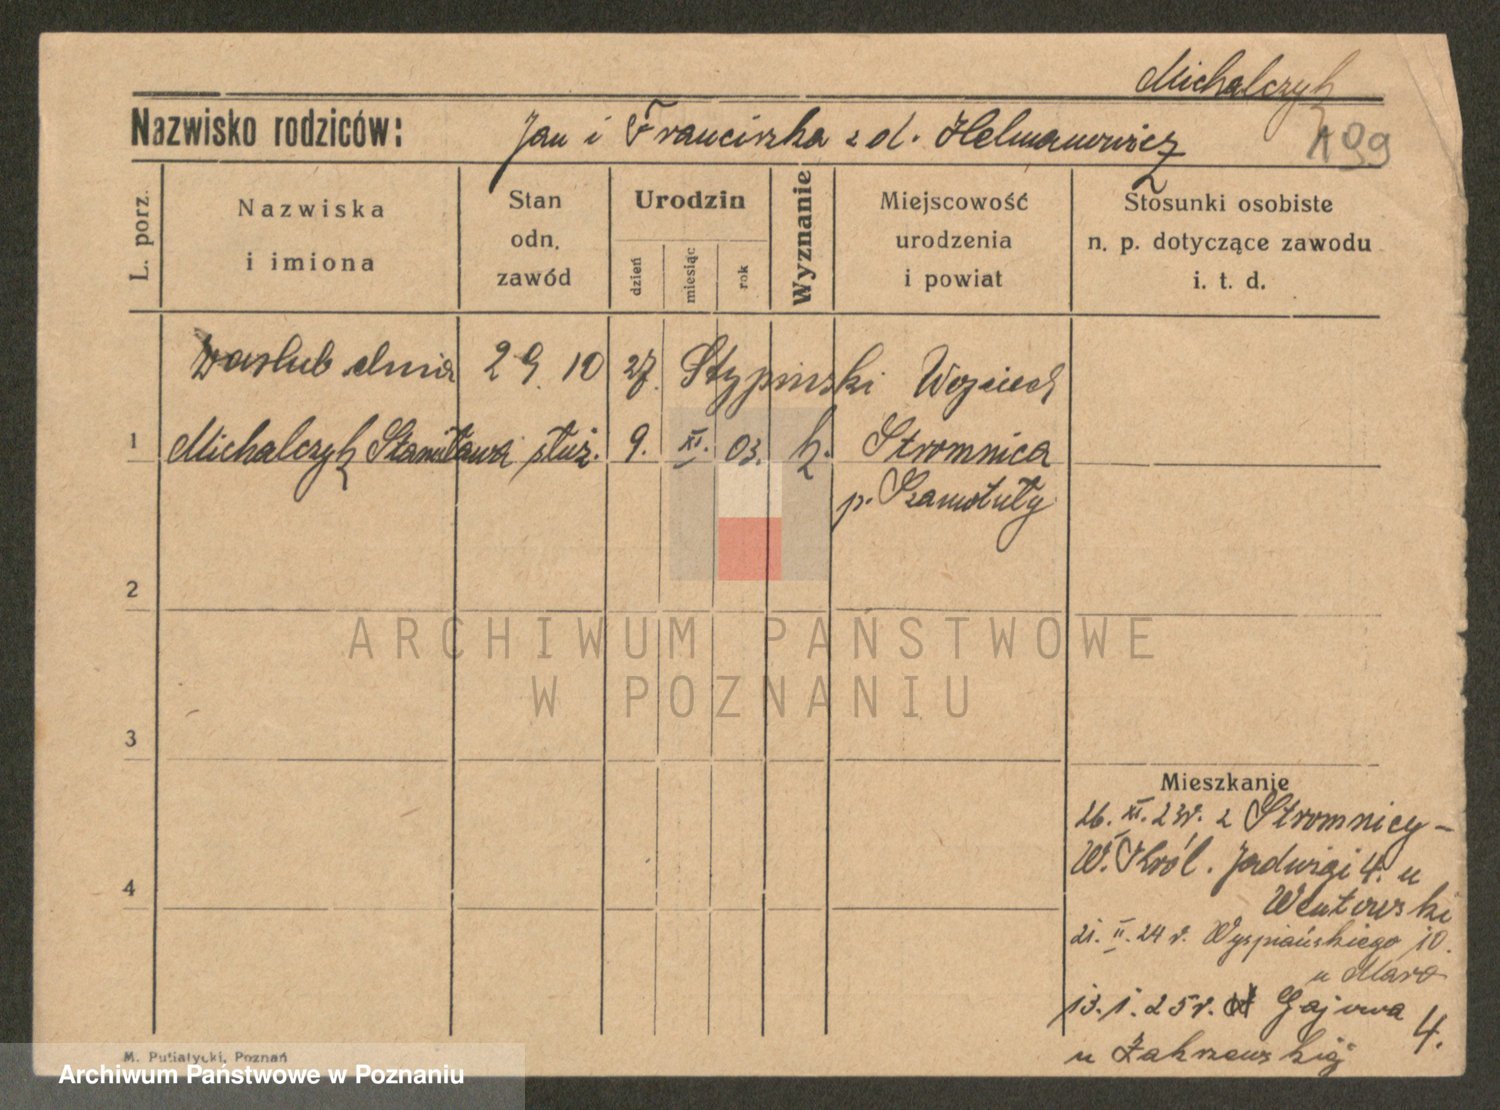 Michalczyk
Nazwisko rodziców: Jan i Franciszka z d. Helmanowicz
199
L. porz.
Nazwiska
i imiona
Stan
odn.
zawód
Urodzin
dzień
miesiąc
rok
Wyznanie
Miejscowość
urodzenia
i powiat
Stosunki osobiste
n. p. dotyczące zawodu
i. t. d.
zaślub dnia 29. 10 27. Stypinski Wojciech
1 Michalczyk Stanisława służ. 9. XI. 03. k. Stromnica
p. Szamotuły
2
3
4
ARCHIWUM PAŃSTWOWE
W POZNANIU
Mieszkanie
26. XI. 23r. z Stromnicy -
W. Król. Jadwigi 4. u
Wentowski
21. II. 24 r. Wyspiańskiego 10.
u Maro
13. 1. 25 r. Gajowa 4.
u Zakrzewskiej
M. Putiatycki, Poznań
Archiwum Państwowe w Poznaniu